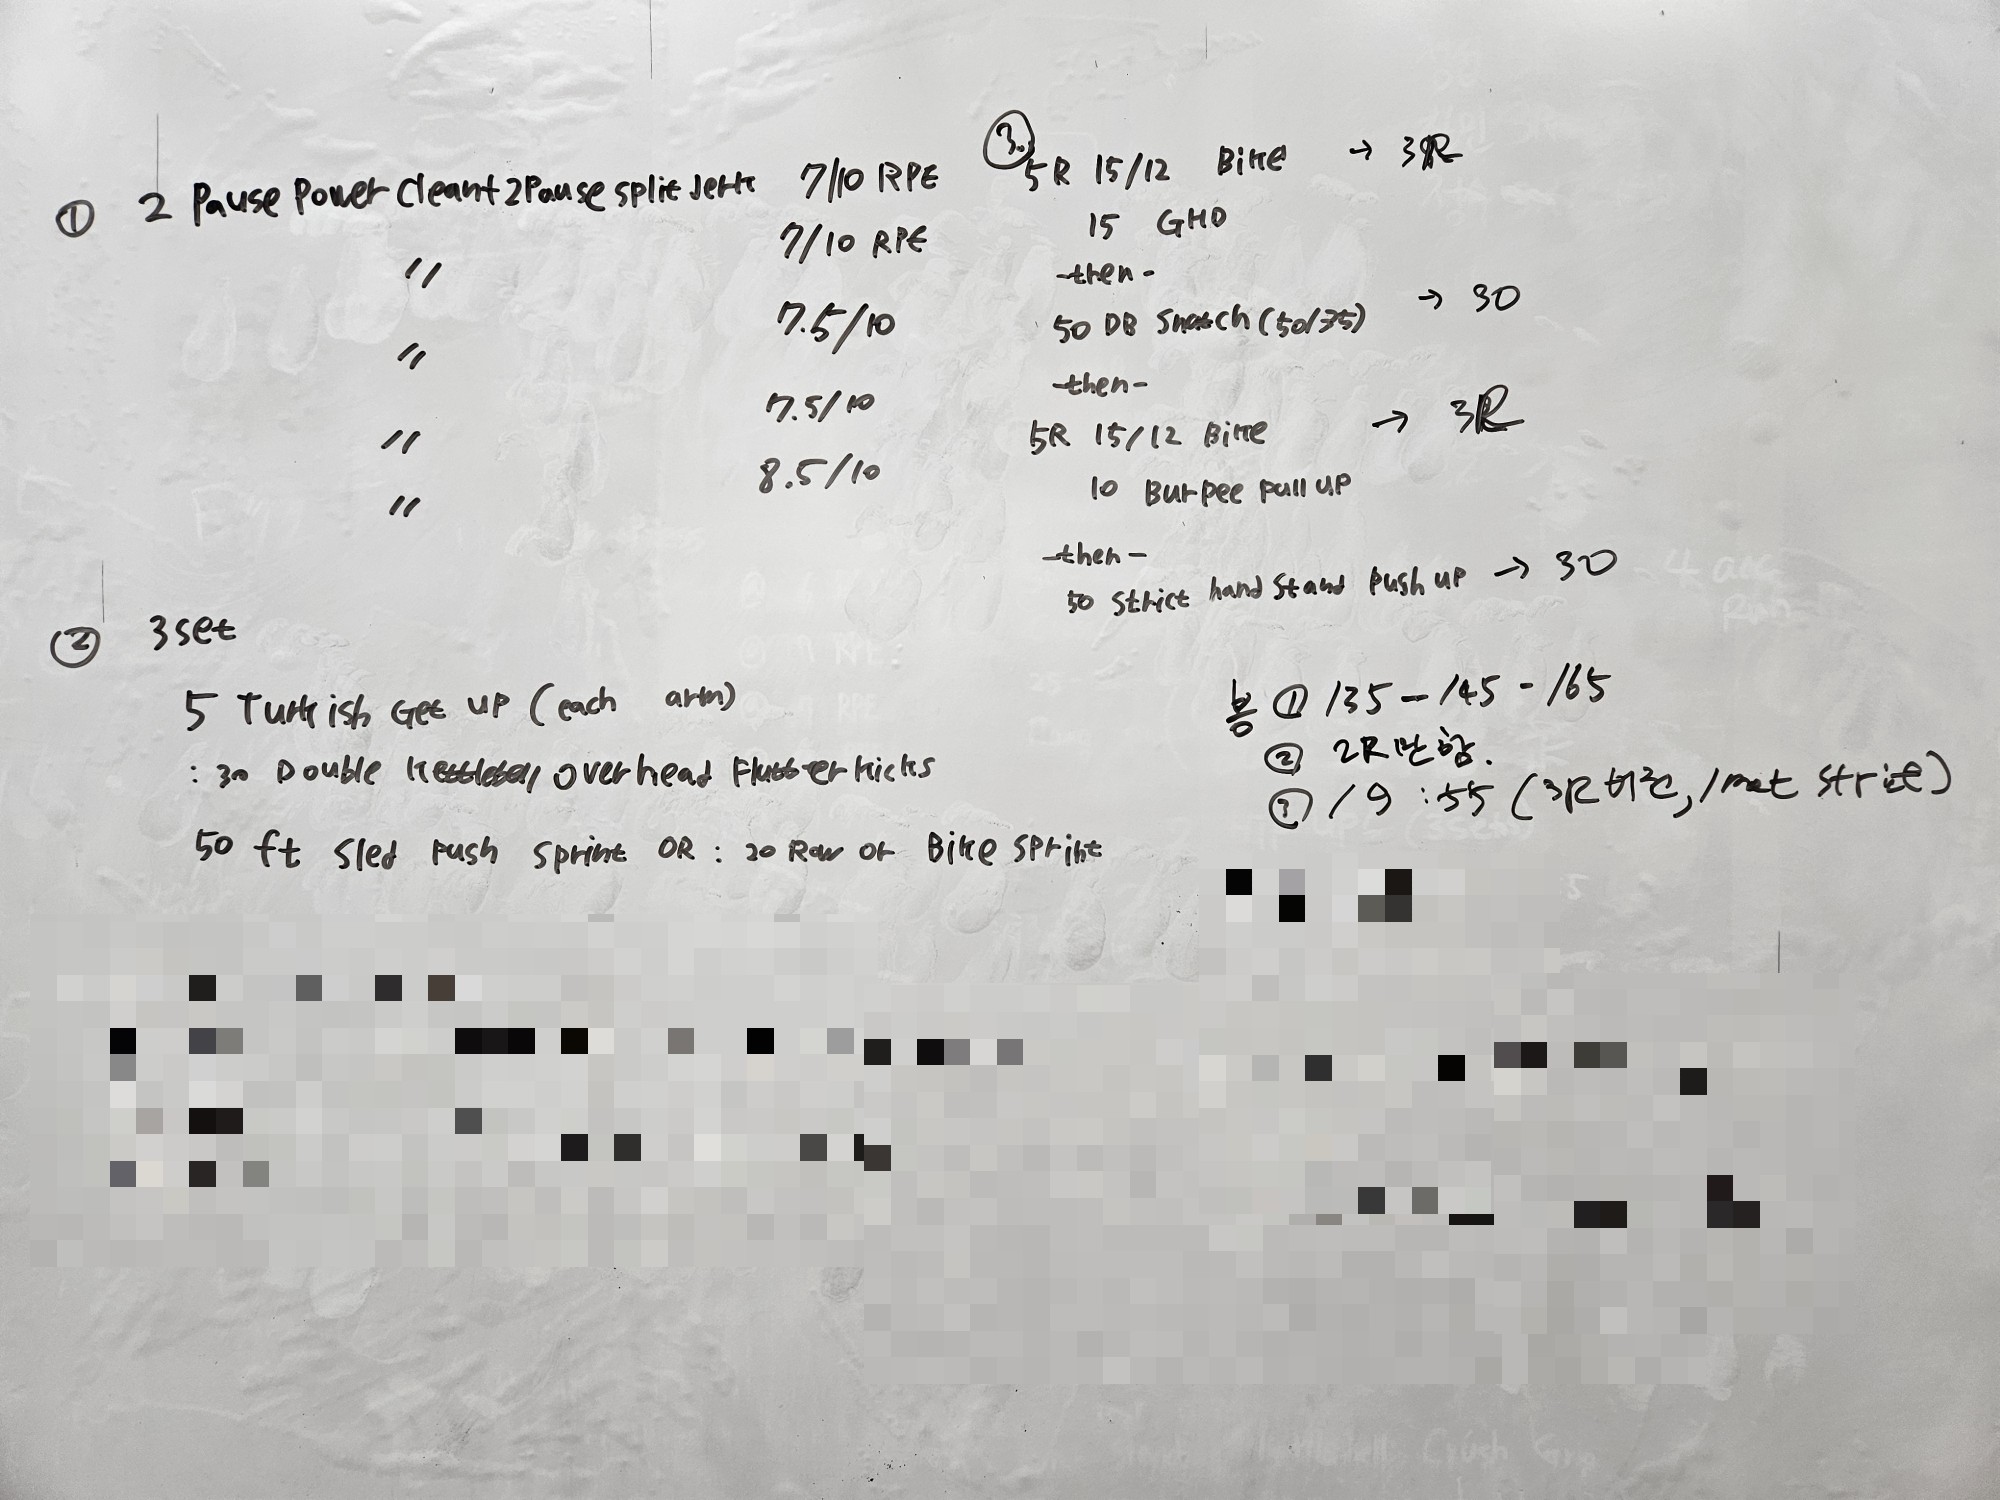 ① 2 Pause Power Clean+2Pause split Jerk 7/10 RPE
〃 7/10 RPE
〃 7.5/10
〃 7.5/10
〃 8.5/10
② 3set
5 Turkish Get up (each arm)
:30 Double Kettlebell Overhead Flutter kicks
50 ft Sled push Sprint OR :20 Row or Bike Sprint
③ 5R 15/12 Bike → 3R
15 GHD
-then-
50 DB Snatch (50/35) → 30
-then-
5R 15/12 Bike → 3R
10 Burpee pull up
-then-
50 Strict hand Stand push up → 30
봉 ① 135-145-165
② 2R만함.
③ 19:55 (3R버전, 1mat Strict)